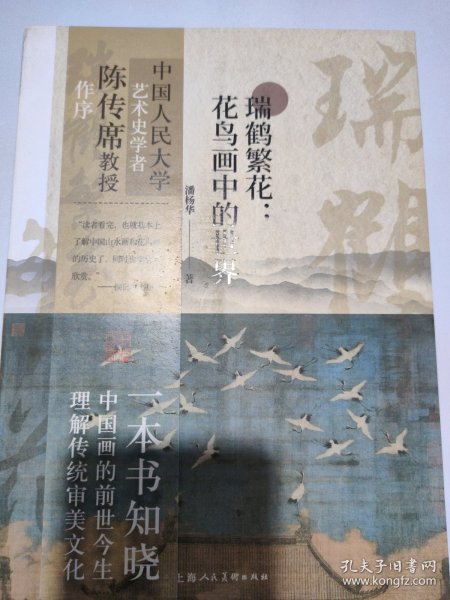 瑞鹤繁花：
花鸟画中的世界
潘杨华
著
中国人民大学
艺术史学者
陈传席教授
作序
“读者看完，也就基本上
了解中国山水画和花鸟画
的历史了，同时也
欣赏。”
一本书知晓
中国画的前世今生
理解传统审美文化
上海人民美术出版社
孔夫子旧书网
www.kongfz.com